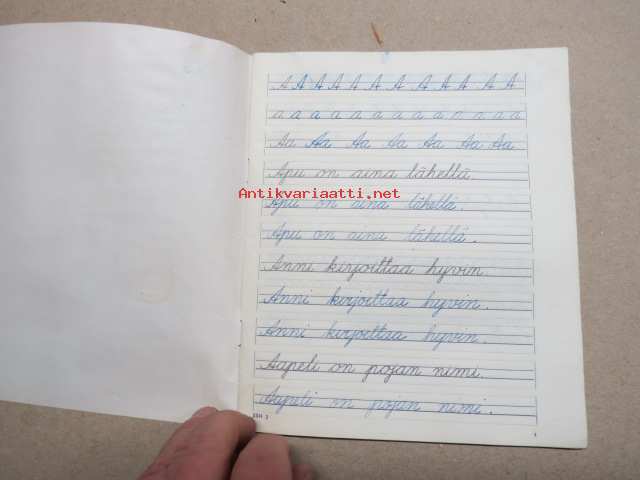 A A A A A A A A A A A A
a a a a a a a a a a a a a
Aa Aa Aa Aa Aa Aa Aa
Apu on aina lähellä.
Antikvariaatti.net
Apu on aina lähellä.
Apu on aina lähellä.
Anni kirjoittaa hyvin.
Anni kirjoittaa hyvin.
Anni kirjoittaa hyvin.
Aapeli on pojan nimi.
Aapeli on pojan nimi.